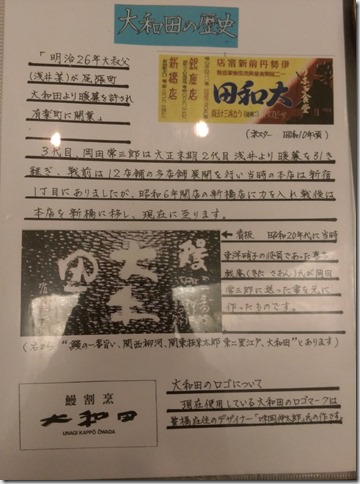 大和田の歴史
「明治26年大叔父
(浅井某)が尾張町
大和田より暖簾を許され
有楽町に開業」
伊勢丹前新宿店
大和田
銀座店
新橋店
(ポスター 昭和10年頃)
3代目、岡田常三郎は大正末期2代目浅井より暖簾を引き
継ぎ、戦前は12店舗の多店舗展開を行い当時の本店は新宿
1丁目にありましたが、昭和6年開店の新橋店に力を入れ戦後は
本店を新橋に移し、現在に至ります。
← 看板 昭和20年代に当時
東洋硝子の役員であった喜多
氏が岡田
常三郎に送った書を元に
作ったものです。
(右から "鰻の一番旨い、関西柳河、関東坂東太郎 東に里江戸、大和田"とあります)
鰻割烹
大和田
UNAGI KAPPŌ ŌWADA
大和田のロゴについて
現在使用している大和田のロゴマークは
氏の作です。